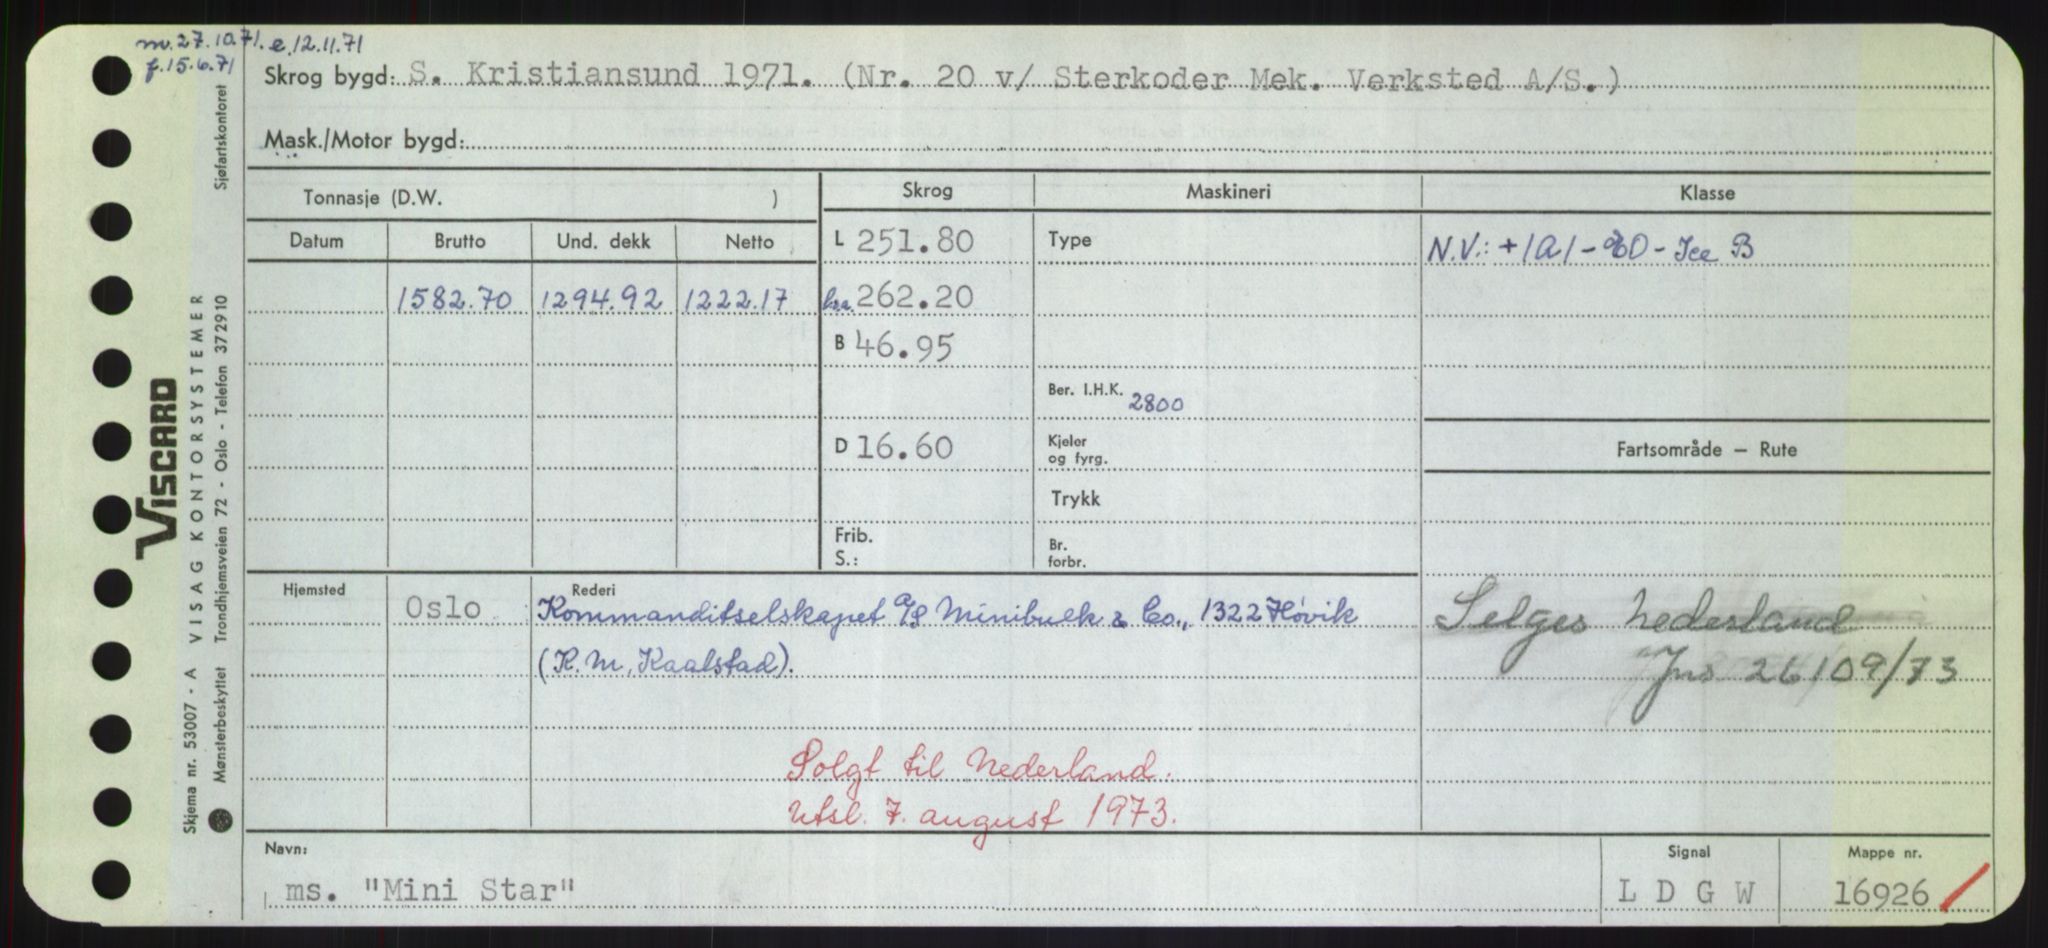 m. 27.10.71. e. 12.11.71
f. 15.6.71
Skrog bygd: S. Kristiansund 1971. (Nr. 20 v/ Sterkoder Mek. Verksted A/S.)
Mask./Motor bygd:
Tonnasje (D.W. )
Skrog Maskineri Klasse
Datum Brutto Und. dekk Netto
L 251.80 Type N.V.: +1A1 - - Ice B
1582.70 1294.92 1222.17 262.20
B 46.95
Ber. I.H.K. 2800
D 16.60 Kjeler og fyrg. Fartsområde — Rute
Trykk
Frib. S.: Br. forbr.
Hjemsted Oslo Rederi Kommanditselskapet A/S Minibulk & Co., 1322 Høvik
(K.M. Kaalstad).
Selges Nederland
Jns 26/09/73
Solgt til Nederland.
Utsl. 7. august 1973.
Navn: ms. "Mini Star"
Signal L D G W
Mappe nr. 16926
VISCARD
Skjema nr. 53007 - A VISAG KONTORSYSTEMER
Mønsterbeskyttet Trondhjemsveien 72 - Oslo - Telefon 372910 Sjøfartskontoret